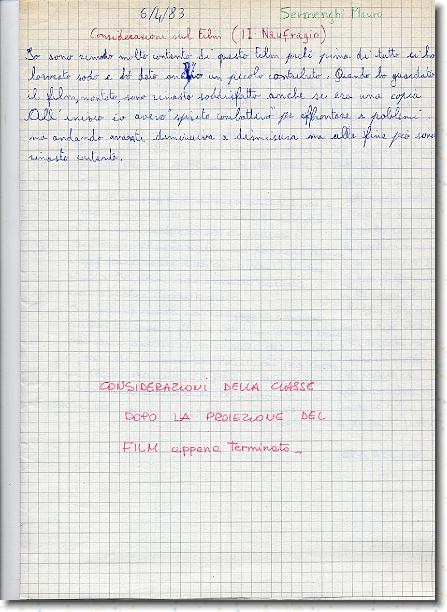 6/4/83 Servienghi Mauro
Considerazioni sul Film (Il Naufragio)
Io sono rimasto molto contento di questo film perché prima di tutto ci ho
lavorato sodo e ho dato anch'io un piccolo contributo. Quando ho guardato
il film, montato, sono rimasto soddisfatto anche se era una copia
All' inizio io avevo spirito combattivo per affrontare i problemi
ma andando avanti diminuiva a dismisura ma alla fine però sono
rimasto contento.
CONSIDERAZIONI DELLA CLASSE
DOPO LA PROIEZIONE DEL
FILM appena Terminato_